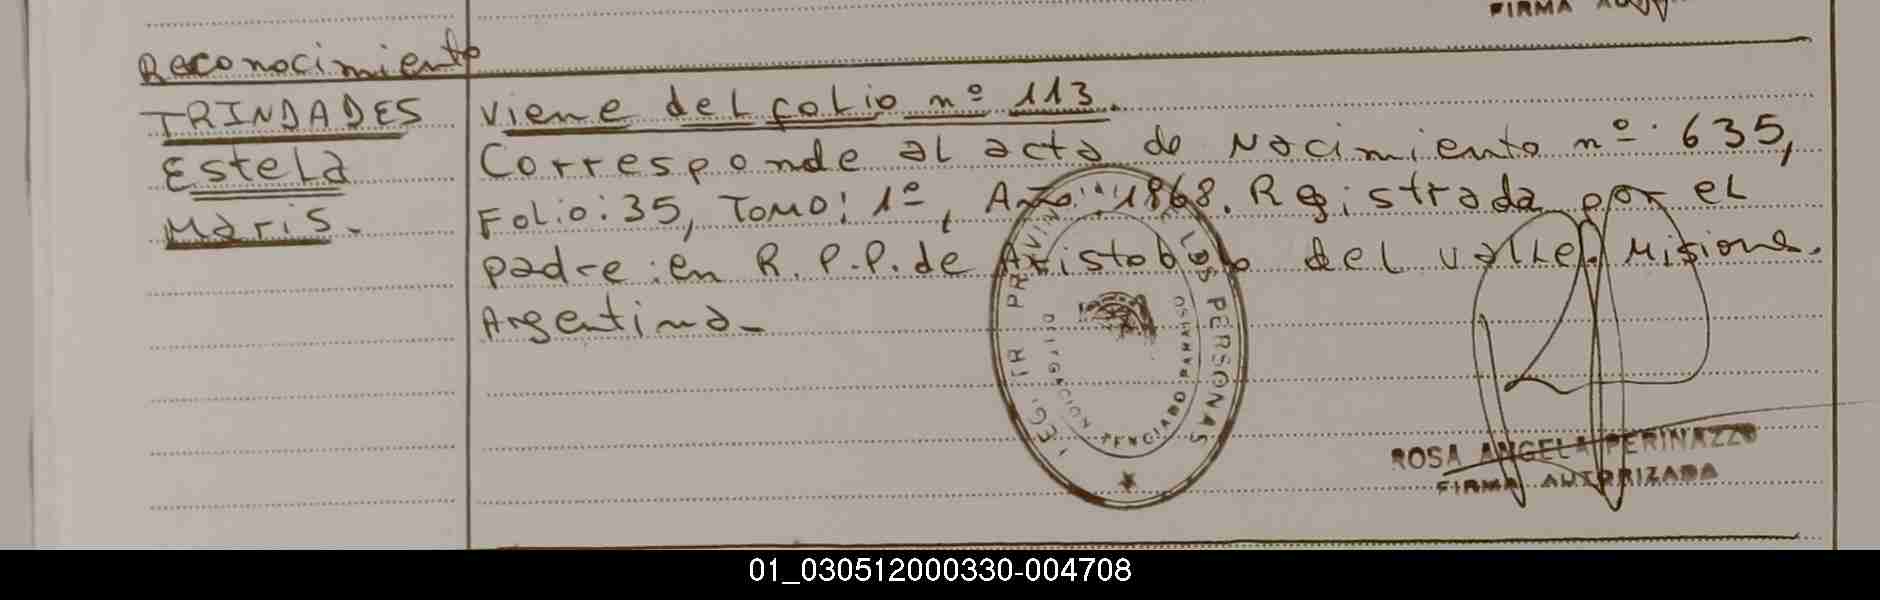 FIRMA
Reconocimiento
TRINDADES
Estela
Maris.
Viene del folio nº 113.
Corresponde al acta de Nacimiento nº. 635,
Folio: 35, Tomo: 1º, Año: 1968. Registrada por el
padre: en R.P.P. de Aristobulo del Valle. Misiones.
Argentina.
LAS PERSONAS
ROSA ANGELA PERINAZZO
FIRMA AUTORIZADA
01_030512000330-004708